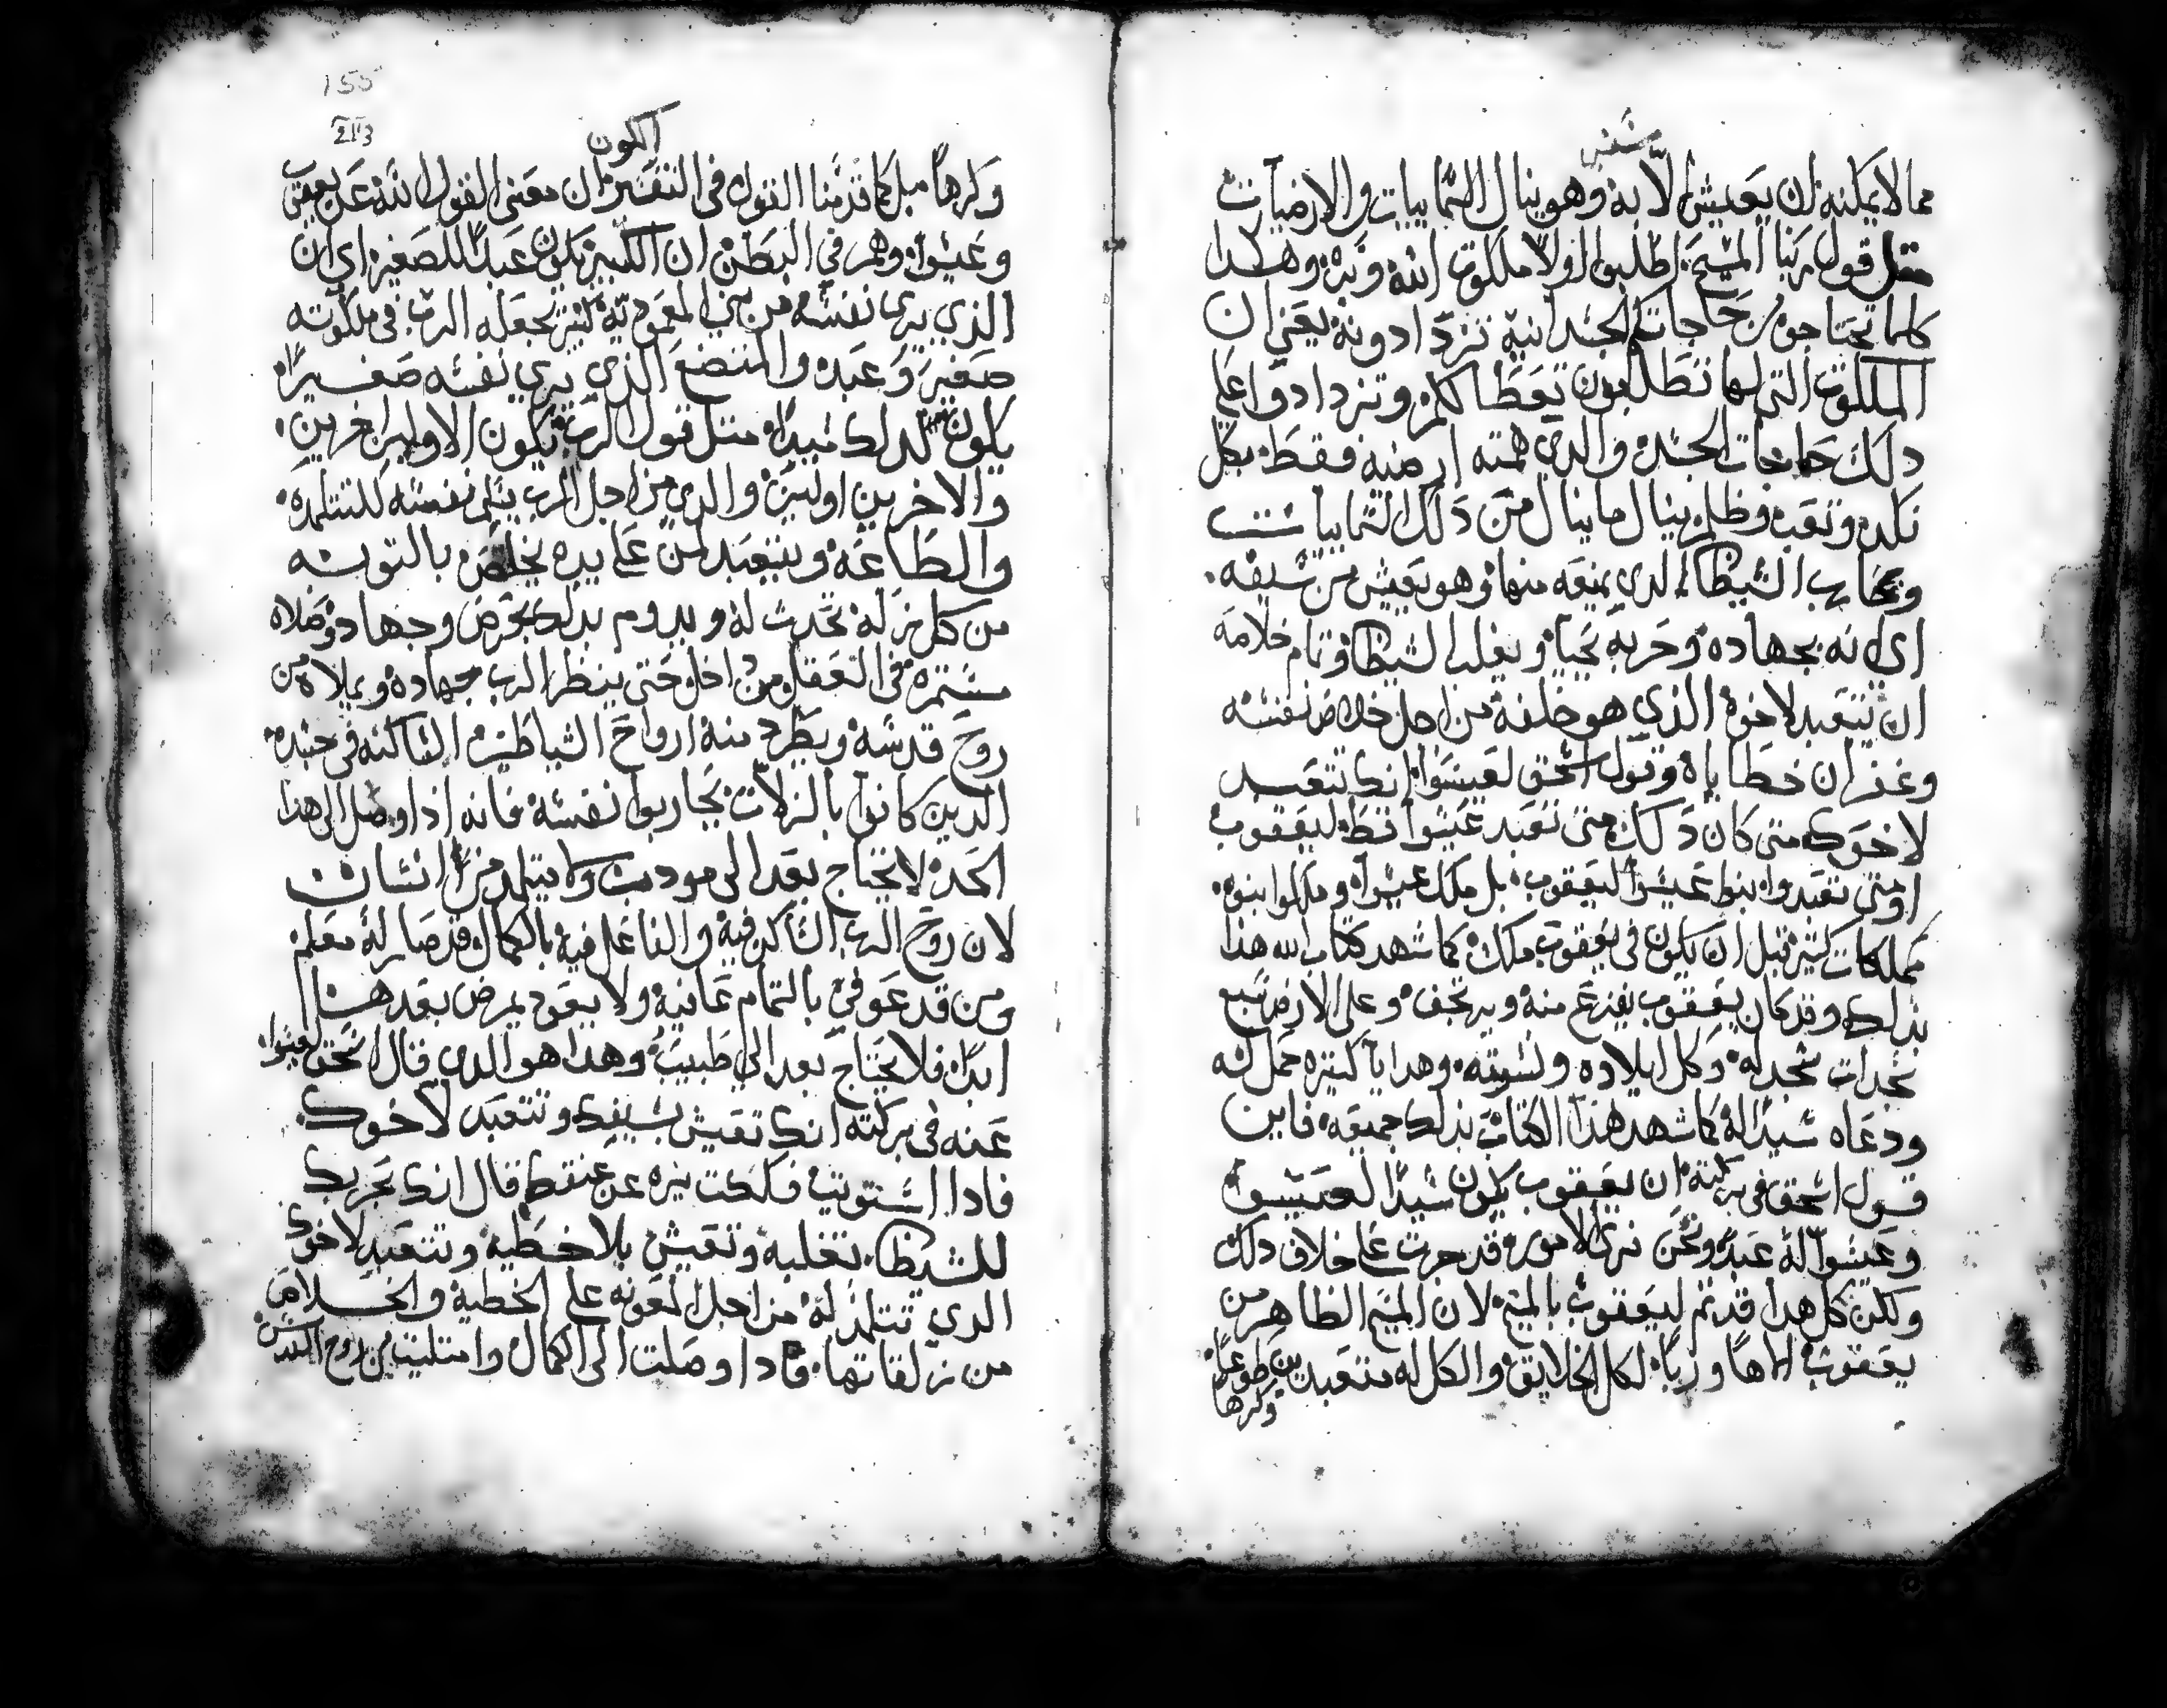 سفر
مما لا يمكنه ان يعيش الّا به وهو ينال السمّاييات والارضيات
مثل قول ربنا المسيح اطلبوا اولًا ملكوت الله وبره وهكدا
كلما تحتاجون من حاجات الجسدانيه تزدادونه يعني ان
الملكوت التي لها تطلبون تعطا لكم وتزدادوا علي
دلك حاجات الجسد والدي همته ارضيه فقط بكل
نكد وتعب وظلم ينال ما ينال من دلك السماييات
ويحارب الشيطان الدي يمنعه منها وهو يعيش من سيفه
اي انه بجهاده وحربه يحيا ويغلب الشيطان وتمام خلاصه
ان يتعبد لاخوه الذي هو خلفه من اجل خلاص نفسه
وغفران خطاياه وقول اسحق لعيسوا انك تتعبد
لاخوك متى كان دلك متى تعبد عيسوا قط ليعقوب
او متى تعبدوا بنوا عيسوا ليعقوب بل ملك عيسوا وملكوا بنوه
مملكات كثيره قبل ان يكون في يعقوب ملك كما شهد كتاب الله هذا
بدلك وقد كان يعقوب يفزع منه ويرتجف وعلى الارض سبع
سجدات سجد له وكل اولاده ونسوته وهدايا كتيره حمل له
ودعاه سيدًا له كما شهد هذا الكتاب بدلك جميعه فاين
قول اسحق في بركته ان يعقوب يكون سيدًا لعيسوا
وعيسوا له عبد ونحن نرى الامور قد جرت على خلاف دلك
ولكن كل هدا قد تم ليعقوب بالمسيح لان المسيح الظاهر من
يعقوب الاهًا وربًا لكل الخلايق والكل له متعبدين طوعًا
وكرها
155
213
الكون
وكرهًا بل كما قدمنا القول في التفسير ان معنى القول الله عن يعقوب
وعيسوا وهم في البطن ان الكبير يكون عبدًا للصغير اي ان
الذي يرى نفسه من بني المعموديه كبير يجعله الرب في ملكوته
صغير وعبد والمتضع الذي يري نفسه صغيرًا
يكون لدلك سيدًا متل قول الرب يكون الاولين اخرين
والاخرين اولين والدي من اجل الرب نفسه للتلمده
والطاعه ويتعبد لمن على يده يخلص بالتوبه
من كل زله تحدث له ويدوم بدلك بحرص وجهاد وصلاه
مستمره في العقل من داخل حتى ينظر الرب جهاده ويملاه من
روح قدسه ويطرد منه ارواح الشياطين الساكنه في جسده
الدين كانوا بالزلات يحاربوا نفسه فانه اذا وصل الى هذا
الحد لا يحتاج بعد الى مودب ولا يتلمد من انسان
لان روح الرب الساكن فيه والفاعل فيه بالكمال قد صار له معلم
ومن قد عوفي بالتمام عافيه ولا يعود يمرض بعدها
ابدًا فلا يحتاج بعد الي طبيب وهدا هو الدي قال اسحق لعيسوا
عنه في بركته انك تعيش بسيفك وتتعبد لاخوك
فادا استويت فككت نيره عن عنقك قال انك تحربك
للشيطان تغلبه وتعيش بلا خطيه وتتعبد لاخوك
الدي تتلمد له من اجل المعونه على الخطيه والخلاص
من زلقاتها فادا وصلت الى الكمال وامتليت من روح القدس